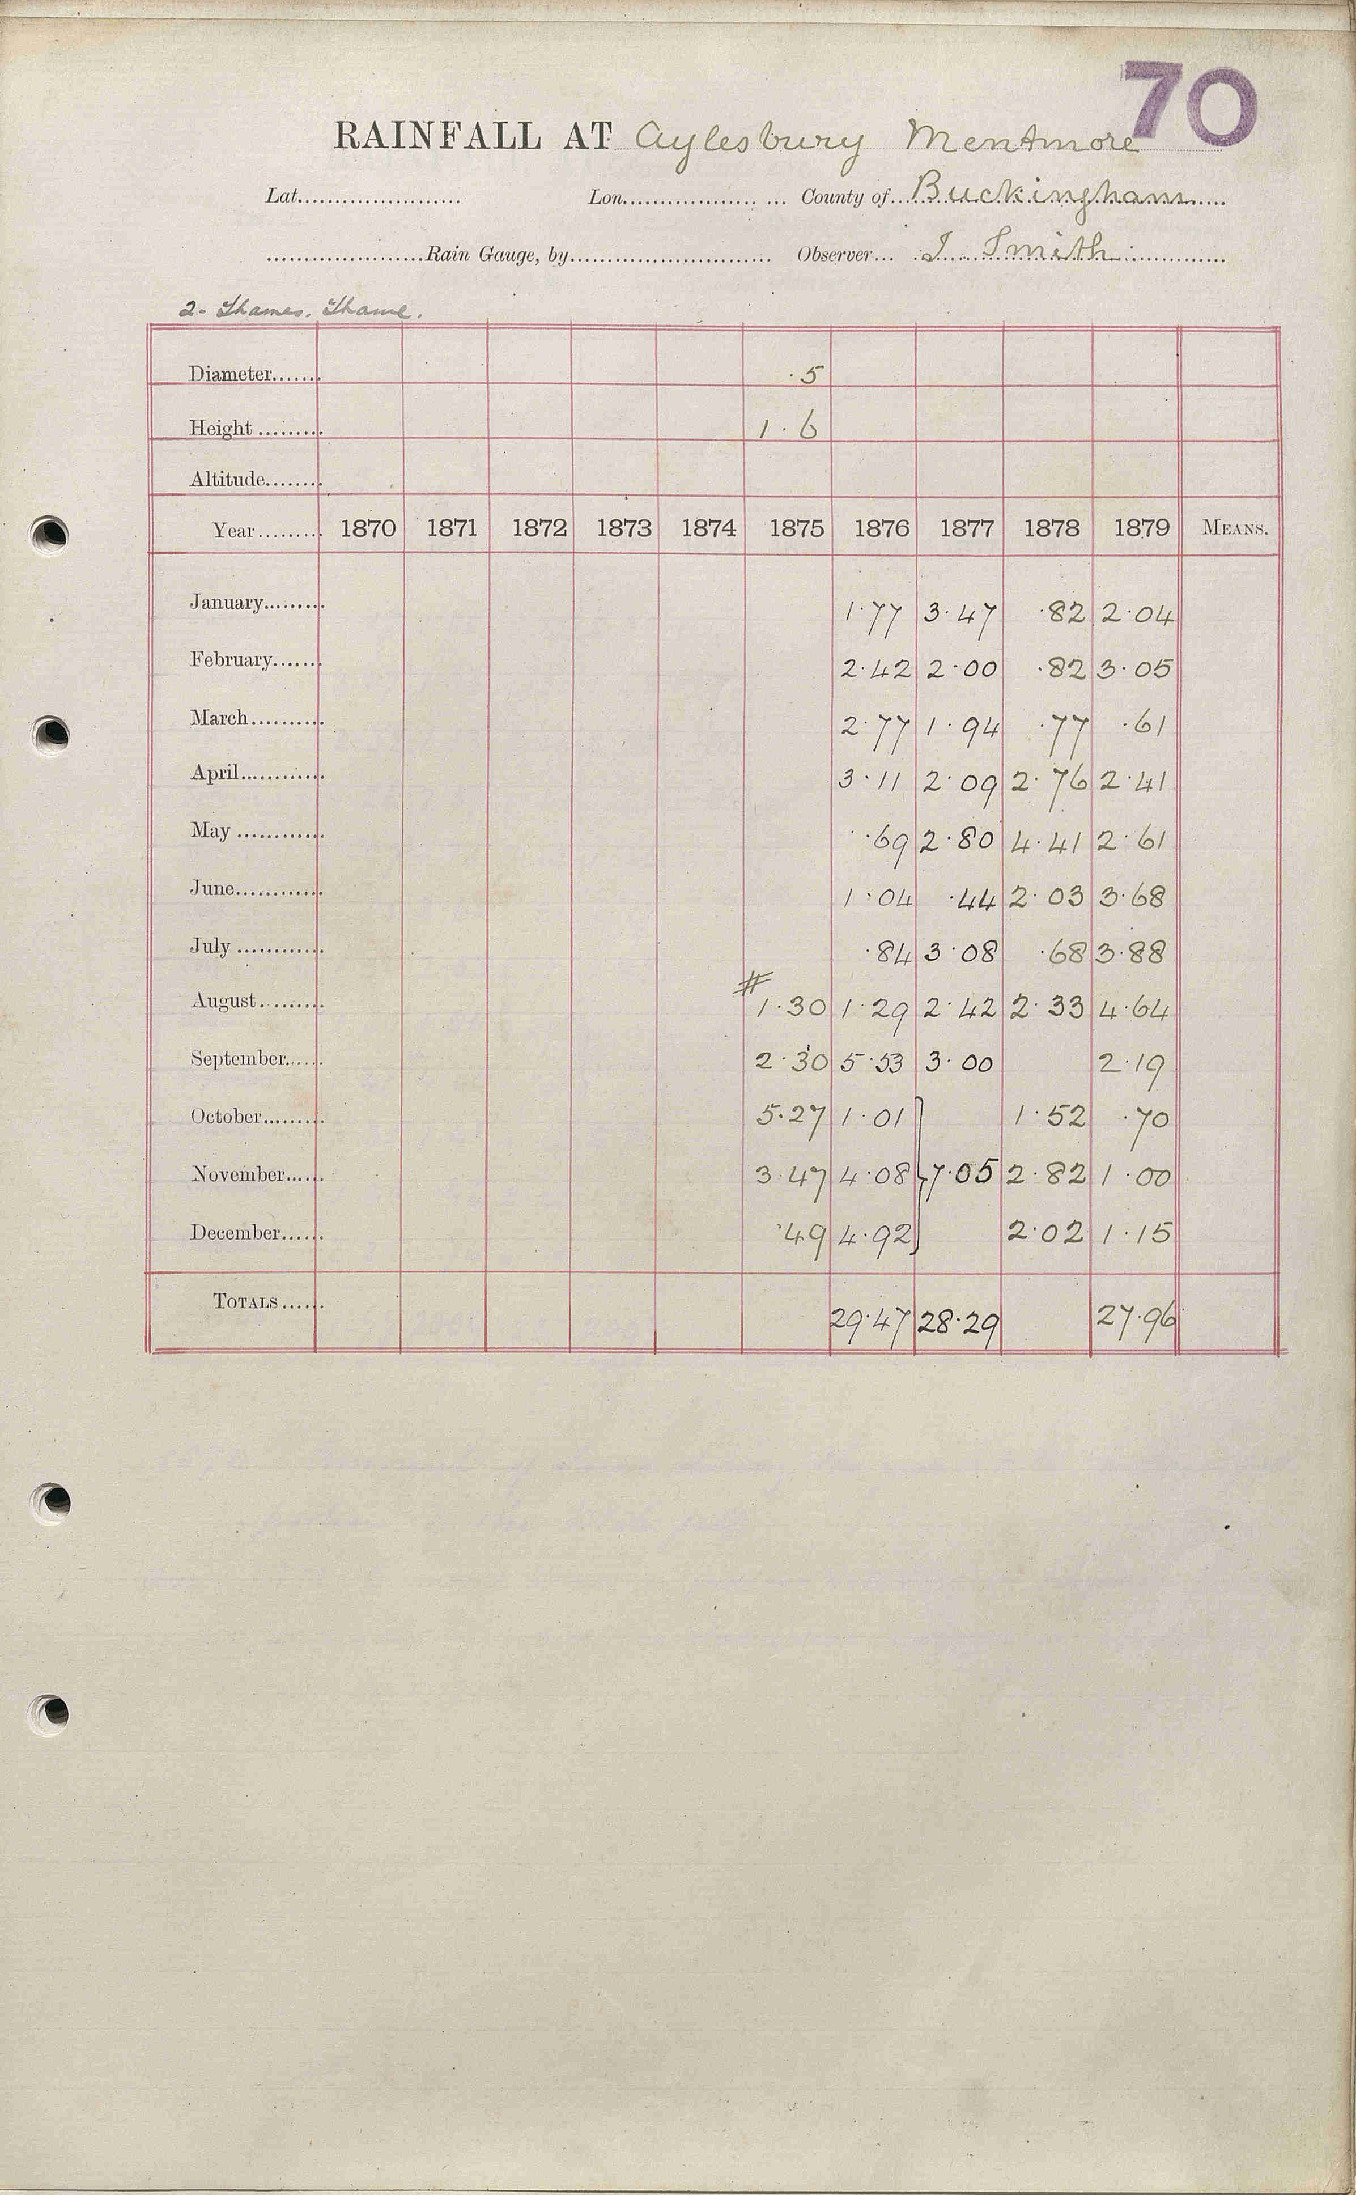 70
RAINFALL AT Aylesbury Mentmore
Lat...................... Lon.................. ... County of...Buckingham.....
......................Rain Gauge, by............................ Observer... J. Smith
2- Thames. Thame.
Diameter....... ·5
Height ......... 1·6
Altitude........
Year......... 1870 1871 1872 1873 1874 1875 1876 1877 1878 1879 MEANS.
January......... 1·77 3·47 ·82 2·04
February....... 2·42 2·00 ·82 3·05
March.......... 2·77 1·94 ·77 ·61
April............ 3·11 2·09 2·76 2·41
May ............ ·69 2·80 4·41 2·61
June............ 1·04 ·44 2·03 3·68
July ............ ·84 3·08 ·68 3·88
August......... # 1·30 1·29 2·42 2·33 4·64
September...... 2·30 5·53 3·00 2·19
October......... 5·27 1·01 1·52 ·70
November...... 3·47 4·08 } 7·05 2·82 1·00
December...... ·49 4·92 2·02 1·15
TOTALS...... 29·47 28·29 27·96